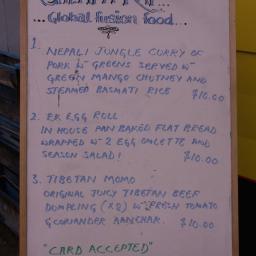 ...Global fusion food...
1. NEPALI JUNGLE CURRY OF
PORK W- GREENS SERVED W-
GREEN MANGO CHUTNEY AND
STEAMED BASMATI RICE $10.00
2. EK EGG ROLL
IN HOUSE PAN BAKED FLAT BREAD
WRAPPED W- 2 EGG OMLETTE AND
SEASON SALAD! $10.00
3. TIBETAN MOMO
ORIGINAL JUICY TIBETAN BEEF
DUMPLING (X8) W- FRESH TOMATO
& CORIANDER AANCHAR. $10.00
"CARD ACCEPTED"